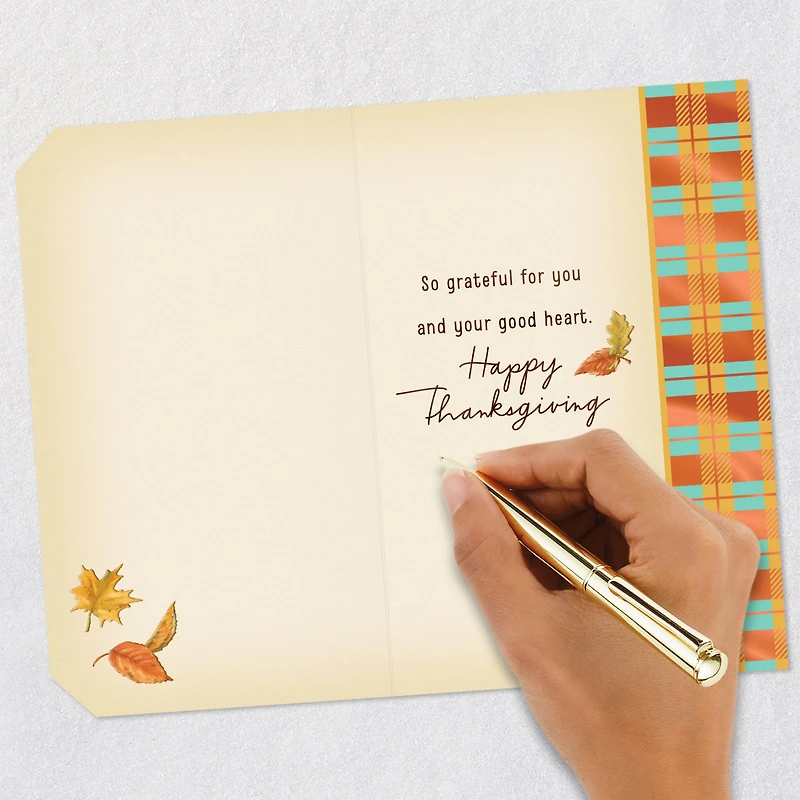 So grateful for you
and your good heart.
Happy
Thanksgiving